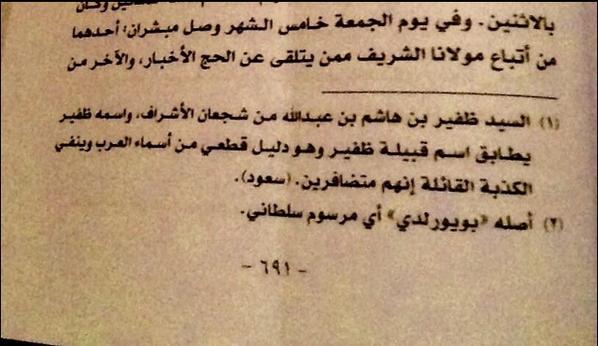 بالاثنين. وفي يوم الجمعة خامس الشهر وصل مبشران: أحدهما
من أتباع مولانا الشريف ممن يتلقى عن الحج الأخبار، والآخر من
(١) السيد ظفير بن هاشم بن عبدالله من شجعان الأشراف، واسمه ظفير
يطابق اسم قبيلة ظفير وهو دليل قطعي من أسماء العرب وينفي
الكذبة القائلة إنهم متضافرين. (سعود).
(٢) أصله «بويورلدي» أي مرسوم سلطاني.
- ٦٩١ -